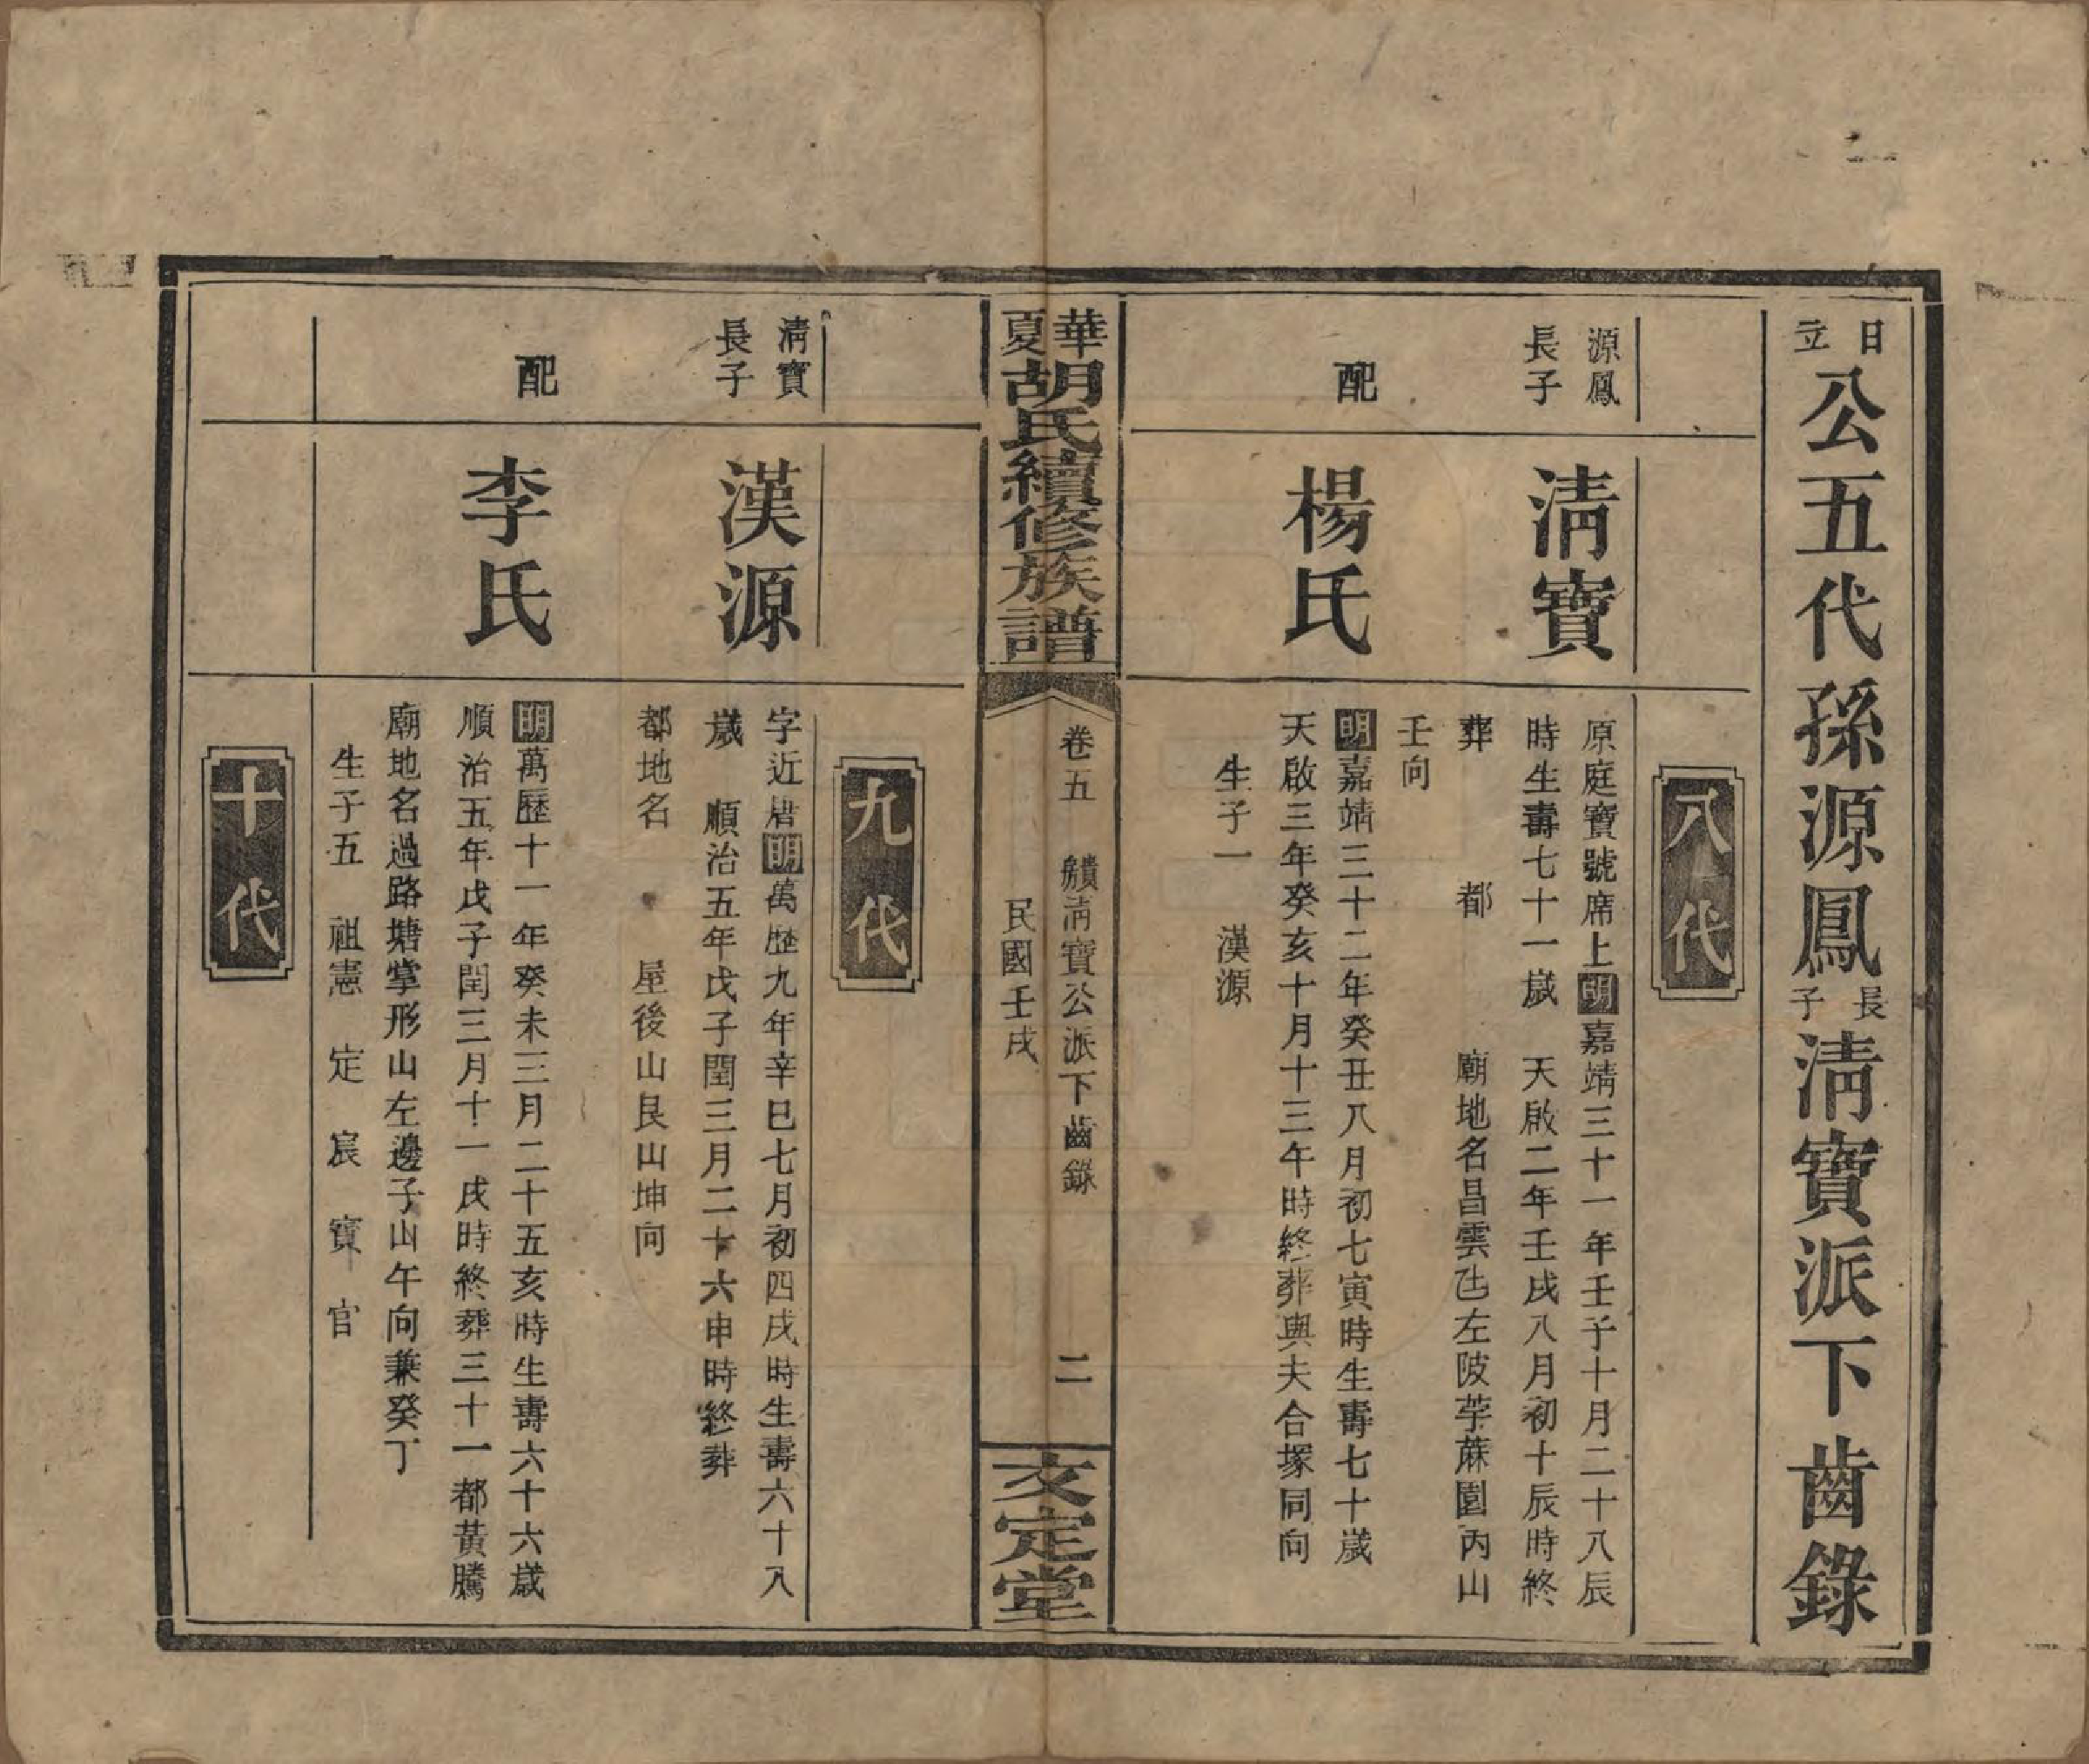 日立公五代孫源鳳長子淸寶派下齒錄
八代
源鳳長子
淸寶
原庭寶號席上明嘉靖三十一年壬子十月二十八辰
時生壽七十一歲 天啟二年壬戌八月初十辰時終
葬 都 廟地名昌雲庄左陂苧蔴園丙山
壬向
配
楊氏
明嘉靖三十二年癸丑八月初七寅時生壽七十歲
天啟三年癸亥十月十三午時終葬與夫合塚同向
生子一 漢源
華夏胡氏續修族譜
卷五 淸寶公派下齒錄 二
民國壬戌
文定堂
九代
淸寶長子
漢源
字近唐明萬歷九年辛巳七月初四戌時生壽六十八
歲 順治五年戊子閏三月二十六申時終葬
都地名 屋後山艮山坤向
配
李氏
明萬歷十一年癸未三月二十五亥時生壽六十六歲
順治五年戊子閏三月十一戌時終葬三十一都黃騰
廟地名過路塘掌形山左邊子山午向兼癸丁
生子五 祖憲 定 宸 寶 官
十代